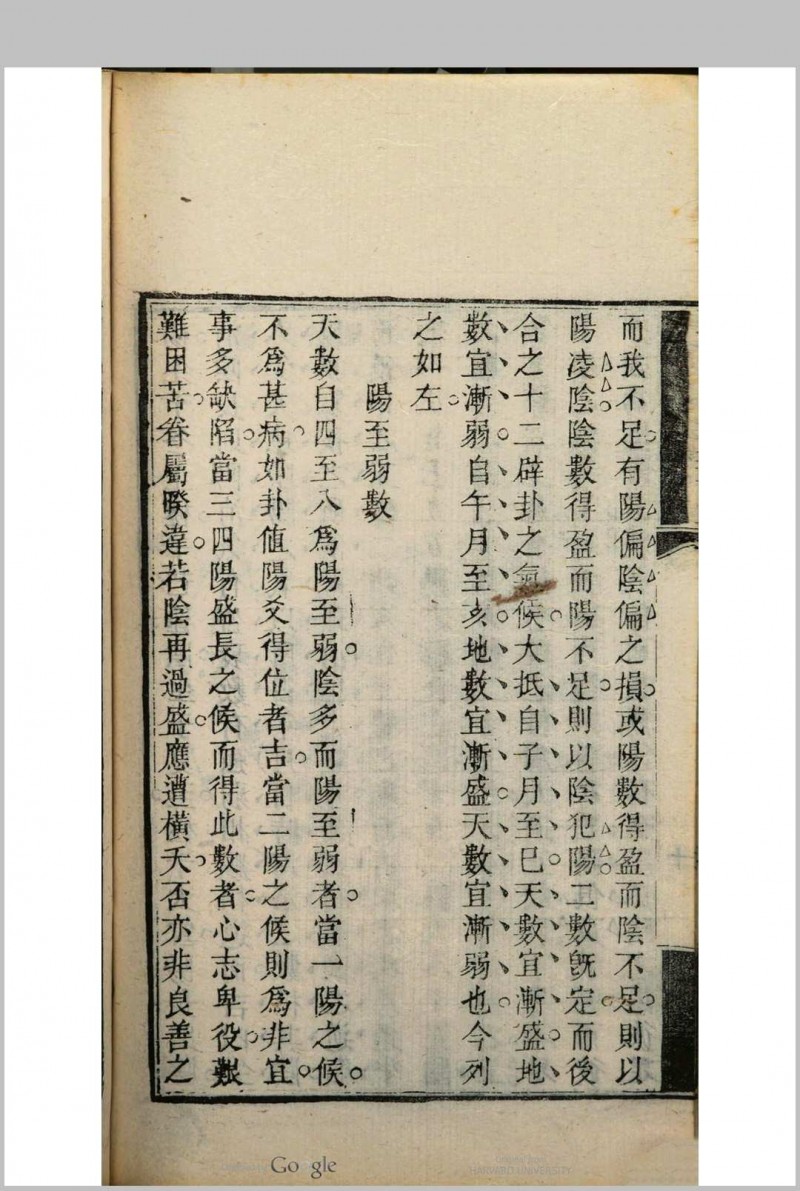 而我不足有陽偏陰偏之損或陽數得盈而陰不足則以
陽凌陰陰數得盈而陽不足則以陰犯陽二數旣定而後
合之十二辟卦之氣候大抵自子月至巳天數宜漸盛地
數宜漸弱自午月至亥地數宜漸盛天數宜漸弱也今列
之如左
陽至弱數
天數自四至八爲陽至弱陰多而陽至弱者當一陽之候
不爲甚病如卦值陽爻得位者吉當二陽之候則爲非宜
事多缺陷當三四陽盛長之候而得此數者心志卑役艱
難困苦眷屬暌違若陰再過盛應遭橫夭否亦非良善之
Google
HARVARD UNIVERSITY